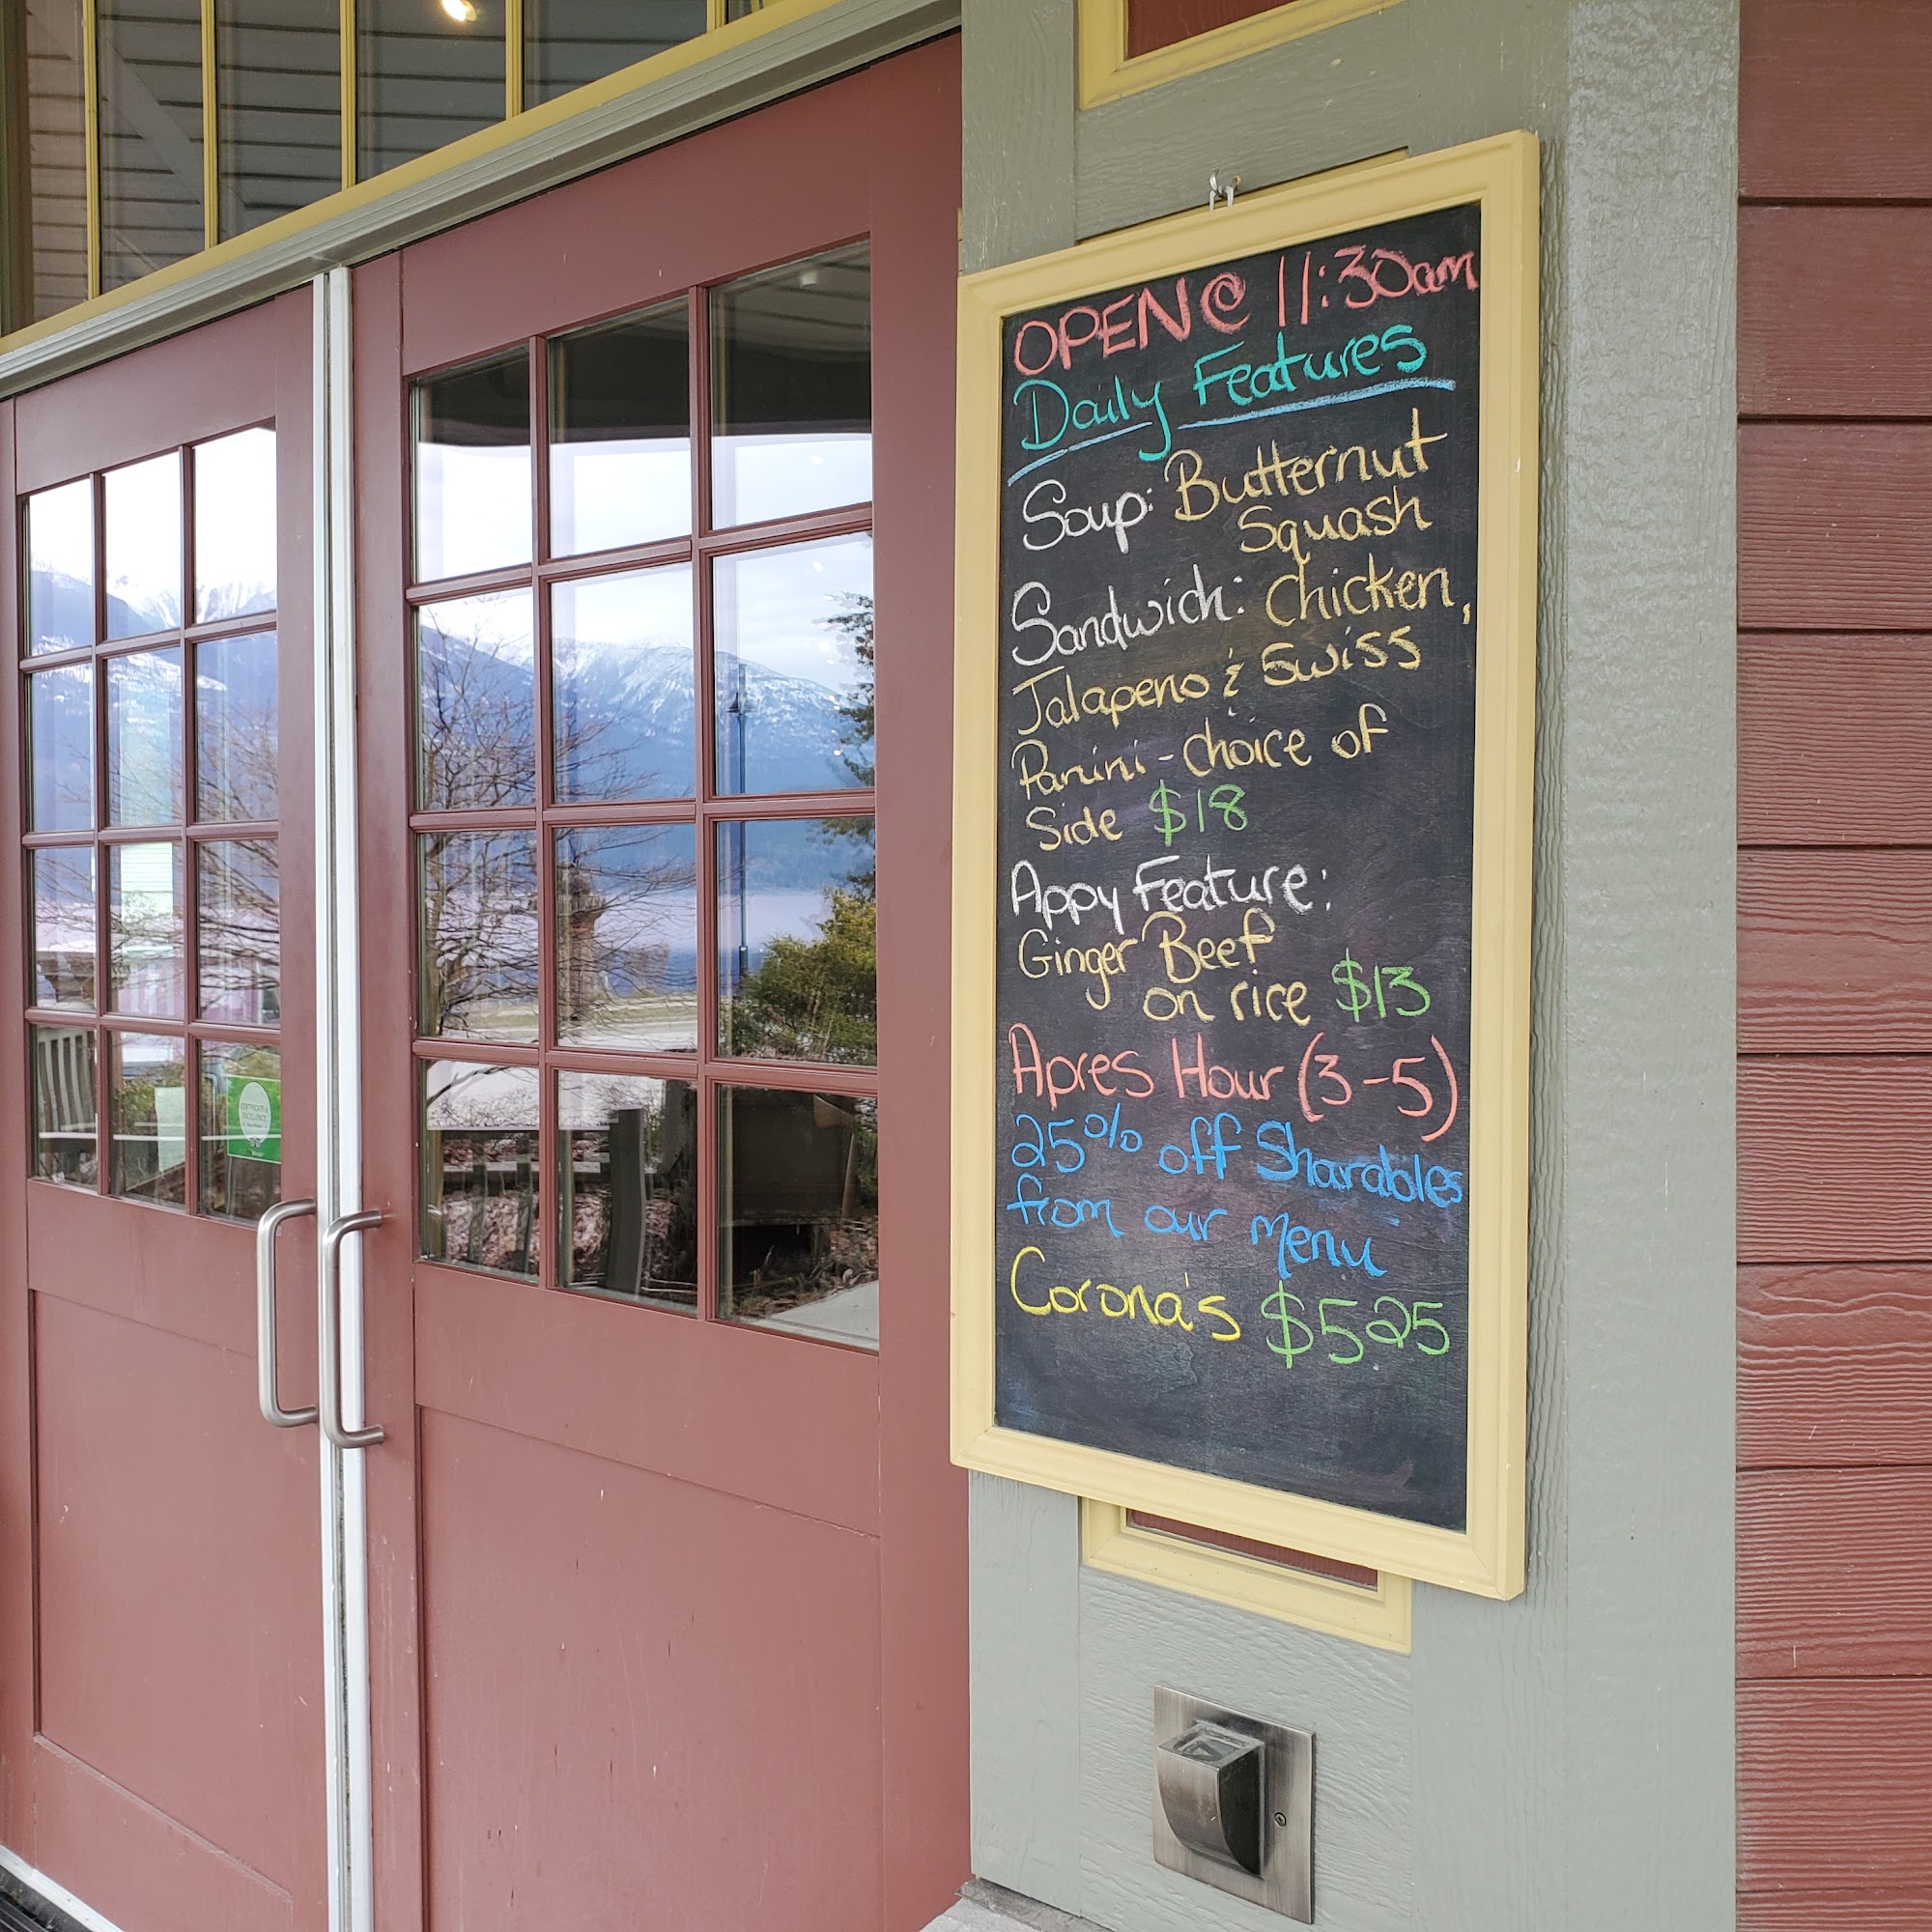 OPEN @ 11:30am
Daily Features
Soup: Butternut
Squash
Sandwich: Chicken,
Jalapeno & Swiss
Panini - choice of
Side $18
Appy Feature:
Ginger Beef
on rice $13
Apres Hour (3-5)
25% off Sharables
from our menu
Corona's $5.25
CERTIFICATE of
EXCELLENCE